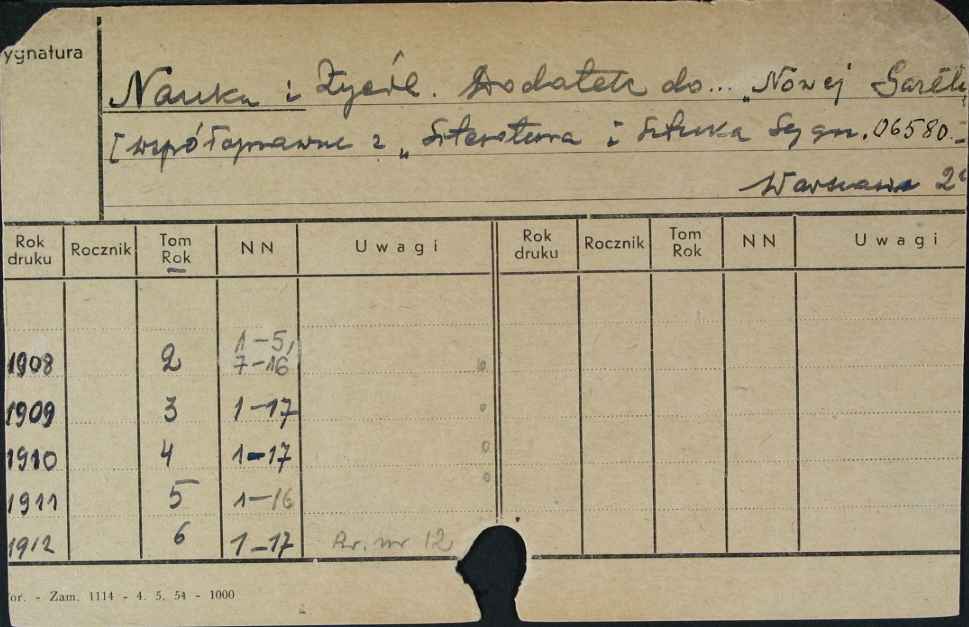 ygnatura
Nauka i Życie. Dodatek do... „Nowej Gazety
[współoprawne z „Literatura i Sztuka Sygn. 06580.
Warszawa 2°
Rok druku Rocznik Tom Rok NN Uwagi Rok druku Rocznik Tom Rok NN Uwagi
1908 2 1-5, 7-16
1909 3 1-17
1910 4 1-17
1911 5 1-16
1912 6 1-17 Br. nr 12
or. - Zam. 1114 - 4. 5. 54 - 1000